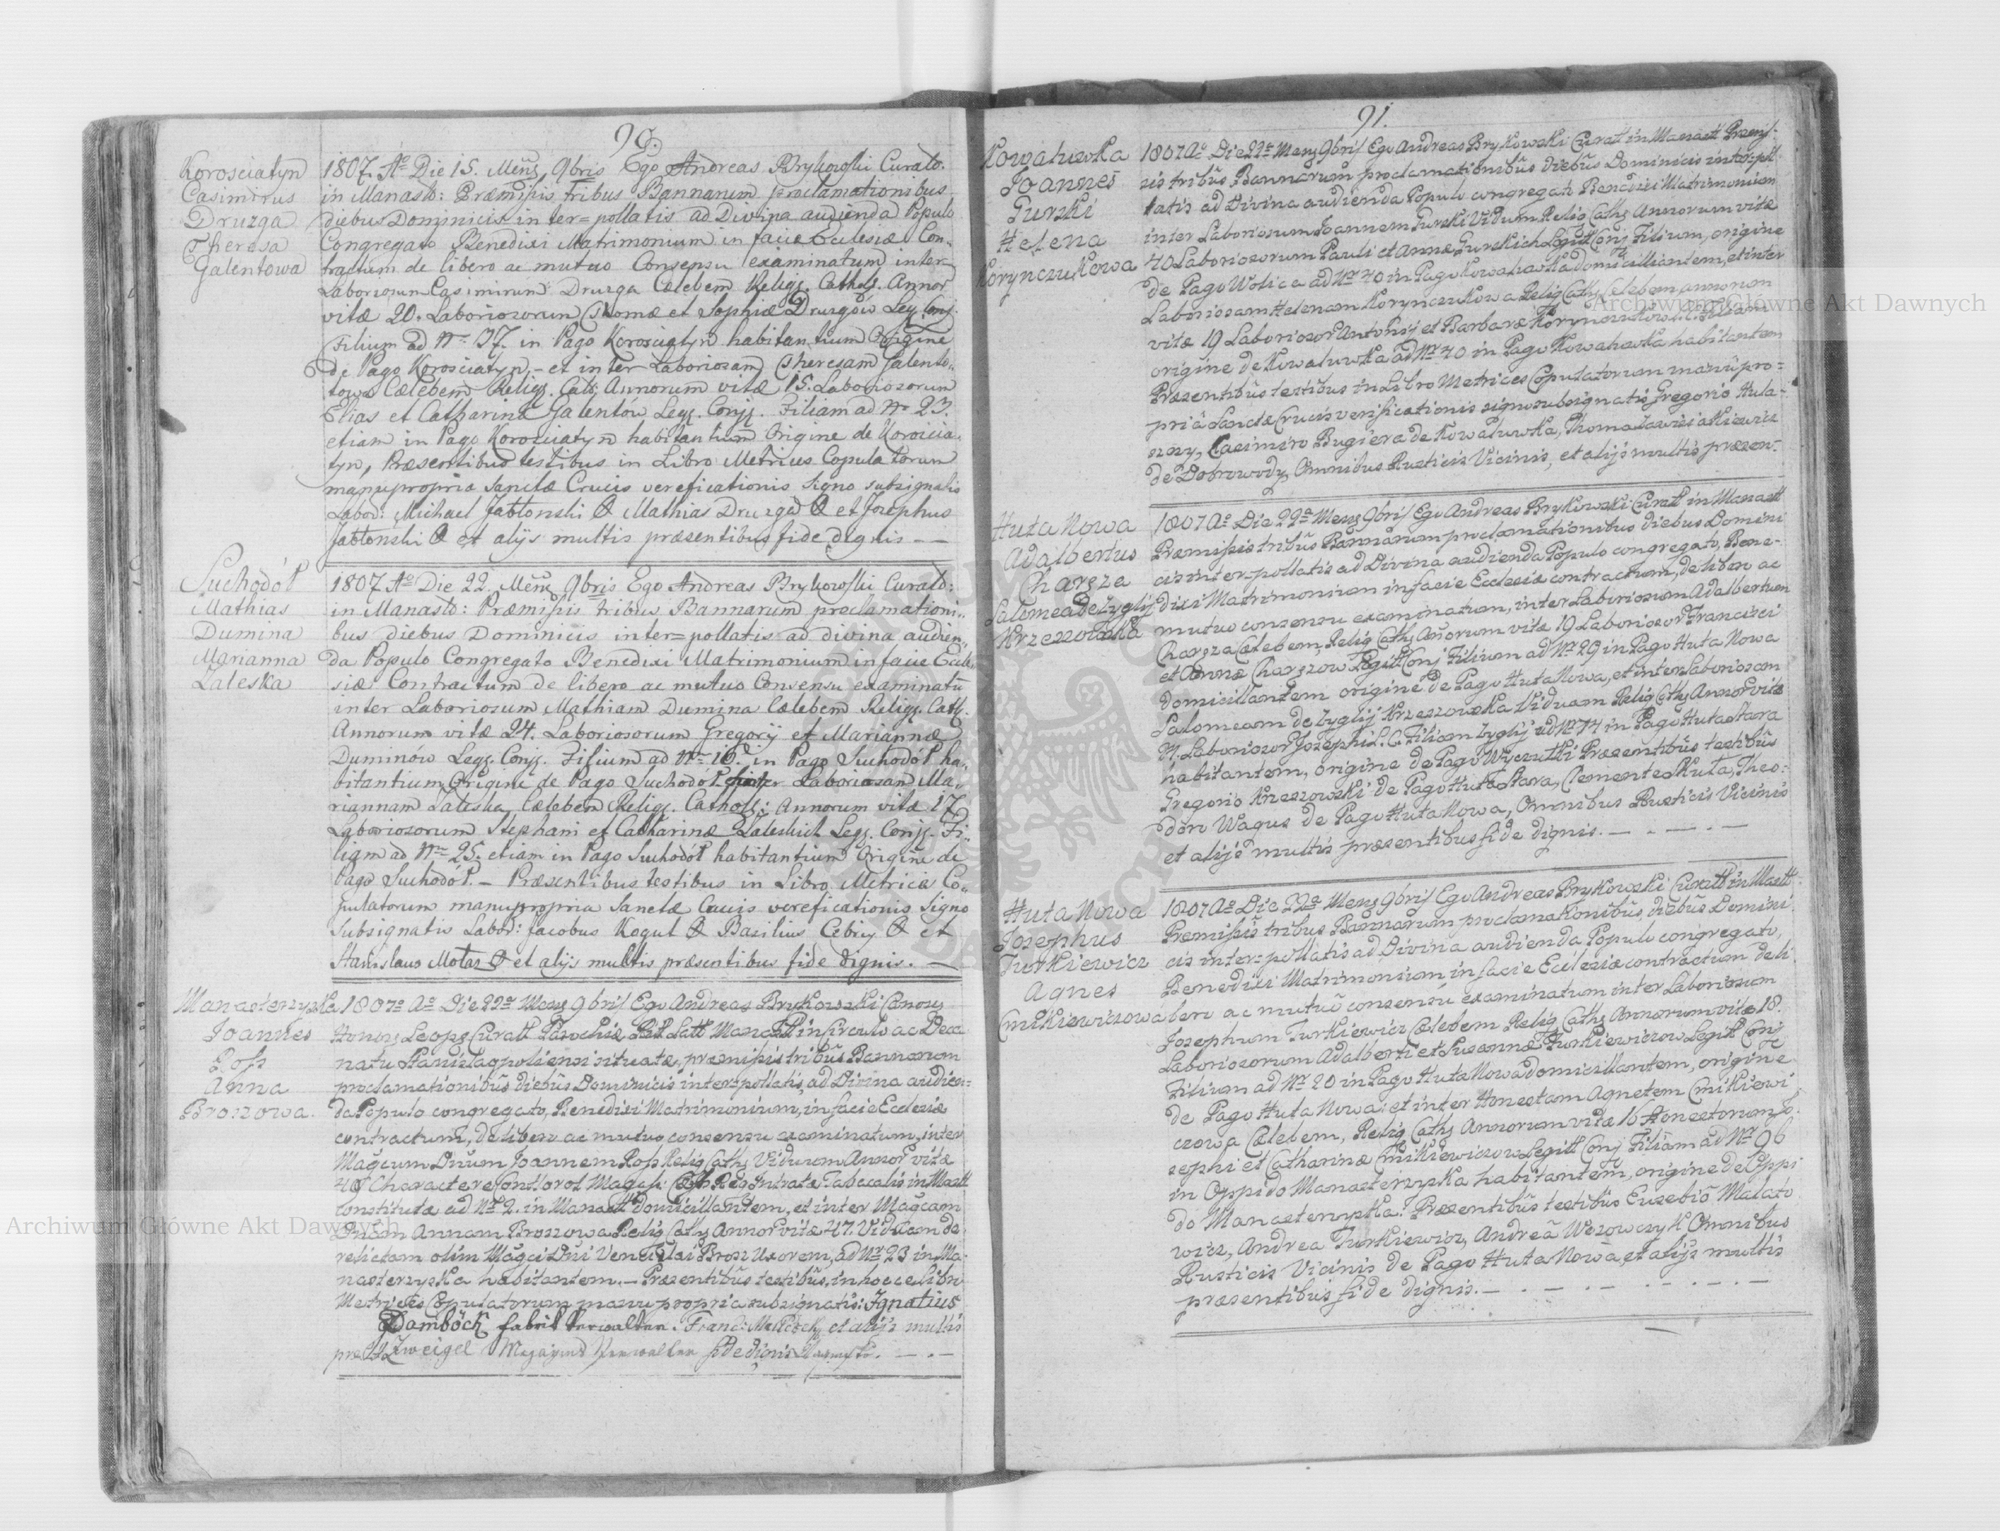 90.
Korosciatyn
Casimirus
Druzga
Theresa
Galentowa
1807. Ao Die 15. Mens 9bris Ego Andreas Brykowski Curato.
in Manast: Præmissis tribus Bannarum proclamationibus
diebus Dominicis inter=pollatis ad Divina audienda Populo
Congregato Benedixi Matrimonium in faciæ Eclesiæ Con„
tractum de libero ac mutuo Consensu examinatum inter
Laboriosum Casimirum Druzga Cælebem Religs. Cathol. Annor
vitæ 20. Laboriosorum Thomæ et Sophiæ Druzgów Leg. Conj.
Filium ad Nr 37. in Pago Korosciatyn habitantium Origine
de Pago Korosciatyn, - et inter Laboriosam Theresam Galento„
towa Cælebem Religs. Cath. Annorum vitæ 15. Laboriosorum
Elias et Catharinæ Galentów Legs. Conjs. Filiam ad Nr 23.
etiam in Pago Korosciatyn habitantium Origine de Koroscia„
tyn, Præsentibus testibus in Libro Metrices Copulatorum
manupropria Sanctæ Crucis vereficationis Signo subsignatis
Labor: Michael Jabłonski & Mathias Druzga & et Josephus
Jabłonski & et alijs multis præsentibus fide dignis —
Suchodół
Mathias
Dumina
Marianna
Laleska
1807. Ao Die 22. Mens 9bris Ego Andreas Brykowski Curato:
in Manast: Præmissis tribus Bannarum proclamationi„
bus diebus Dominicis inter=pollatis ad divina audien„
da Populo Congregato Benedixi Matrimonium in facie Ecle
siæ Contractum de libero ac mutuo Consensu examinatū
inter Laboriosum Mathiam Dumina Cælebem Religs. Cath.
Annorum vitæ 24. Laboriosorum Gregorij et Mariannæ
Duminów Legs. Conjs. Filium ad Nr 10. in Pago Suchodół ha„
bitantium, Origine de Pago Suchodół inter Laboriosam Ma„
riannam Laleska Cælebem Religs. Cathol: Annorum vitæ 17
Laboriosorum Stephani et Catharinæ Laleskich Legs. Conjs. Fi„
liam ad Nr 25. etiam in Pago Suchodół habitantium Origine de
Pago Suchodół. — Præsentibus testibus in Libro Metrices Co„
pulatorum manupropria Sanctæ Crucis vereficationis Signo
Subsignatis Labor: Jacobus Kogut & Basilius Cebrij & et
Stanislaus Motas & et alijs multis præsentibus fide dignis. —
Manasterzyska
Joannes
Pop
Anna
Broszowa.
1807o Ao Die 22a Mens 9bris Ego Andreas Brykowski Canons
Honors Leops Curatt Parochiæ Rit Latt Manastt in Circulo ac Deca
natu Stanislapoliensi situatæ, præmissis tribūs Bannarum
proclamationibūs diebūs Dominicis inter=pollatis, ad Divina audien=
da Populo congregato, Benedixi Matrimonium, in facie Ecclesiæ
contractum, de libero ac mutuo consensu examinatum, inter
Magcum Dnum Joannem Pop Relig Caths Viduum Annor vitæ
constitutæ ad Nr 2. in Manastt domicillantem, et inter Magcam
Dnam Annam Broszowa Relig Caths Annor vitæ 47. Viduam de
relictam olim Magci Dni Venceslai Brosz Uxorem, ad Nr 23 in Ma:
nasterzyska habitantem. — Præsentibūs testibūs, in hocce libro
Metrices Copulatorum manu propria subsignatis: Ignatius
Damböck fabrik verwalter.
Zweigel Magazins Verwalter fide dignis
91.
Kowalowka
Joannes
Gurski
Helena
Korynczukowa
1807 Ao Die 22a Mens 9bris Ego Andreas Brykowski Curatt in Manastt Præmis:
sis tribūs Bannarum proclamationibūs diebūs Dominicis inter=pol
latis ad Divina audienda Populo congregato Benedixi Matrimonium
inter Laboriosum Joannem Gurski Viduum Relig Caths Annorum vitæ
40 Laboriosorum Pauli et Annæ Gurskich Legitt Conj Filium, origine
de Pago Wolica ad Nr 40 in Pago Kowalowka domicillantem, et inter
Laboriosam Helenam Korynczukowa Relig Caths Cælebem annorum
vitæ 19 Laboriosor Antonij et Barbaræ Korynczukow L.C. Filiam
origine de Kowalowka ad Nr 40 in Pago Kowalowka habitantem
Præsentibūs testibus in Libro Metrices Copulatorum manū pro=
priâ Sanctæ Crucis verificationis signo subsignatis Gregorio Hula=
szny, Casimiro Bugiera de Kowalowka, Thoma Lewickiewicz
de Dobrowody, Omnibus Rusticis Vicinis, et alijs multis præsen.
Huta Nowa
Adalbertus
Charęza
Salomea de Zyglij
Krzeszowska
1807 Ao Die 22a Mens 9bris Ego Andreas Brykowski Curatt in Manastt
Præmissis tribūs Bannarum proclamationibus diebus Domini
cis inter=pollatis ad Divina audienda Populo congregato, Bene=
dixi Matrimonium in facie Ecclesiæ contractum, de libero ac
mutuo consensu examinatum, inter Laboriosum Adalbertum
Charęza Cælebem, Relig Caths Añorum vitæ 19 Laboriosor Francisci
et Annæ Charęzow Legitt Conj Filium ad Nr 29 in Pago Huta Nowa
domicillantem origine de Pago Huta Nowa, et inter Laboriosam
Salomeam de Zyglij Krzeszowska Viduam Relig Caths Annor vitæ
Laborosor Josephi L.C. Filiam Zyglij ad Nr 74 in Pago Huta Stara
habitantem, origine de Pago Wyczułki Præsentibūs testibūs
Gregorio Krzeszowski de Pago Huta Stara, Clemente Kuta, Theo=
don Wagus de Pago Huta Nowa, Omnibus Rusticis Vicinis
et alijs multis præsentibus fide dignis. — . — . —
Huta Nowa
Josephus
Turkiewicz
Agnes
Cmikiewiczowa
1807 Ao Die 22a Mens 9bris Ego Andreas Brykowski Curatt in Mastt
Præmissis tribūs Bannarum proclamationibūs, diebūs Domini
cis inter=pollatis ad Divina audienda Populo congregato,
Benedixi Matrimonium in facie Ecclesiæ contractum de li
bero ac mutuo consensu examinatum inter Laboriosum
Josephum Turkiewicz Cælebem Relig Caths Annorum vitæ 18.
Laboriosorum Adalberti et Susannæ Turkiewiczow Legitt Conj
Filium ad Nr 20 in Pago Huta Nowa domicillantem, origine
de Pago Huta Nowa: et inter Honestam Agnetem Cmikiewi
czowa Cælebem, Relig Caths Annorum vitæ 16 Honestorum Jo:
sephi et Catharinæ Cmikiewiczow Legitt Conj Filiam ad Nr 96
in Oppido Manasterzyska habitantem, origine de Oppi
do Manasterzyska. Præsentibūs testibūs Eusebio Malato
wicz, Andrea Turkiewicz, Andreâ Wezowczyk Omnibus
Rusticis Vicinis de Pago Huta Nowa, et alijs multis
præsentibus fide dignis. — . — . — . — . —
Archiwum Główne Akt Dawnych
Archiwum Główne Akt Dawnych